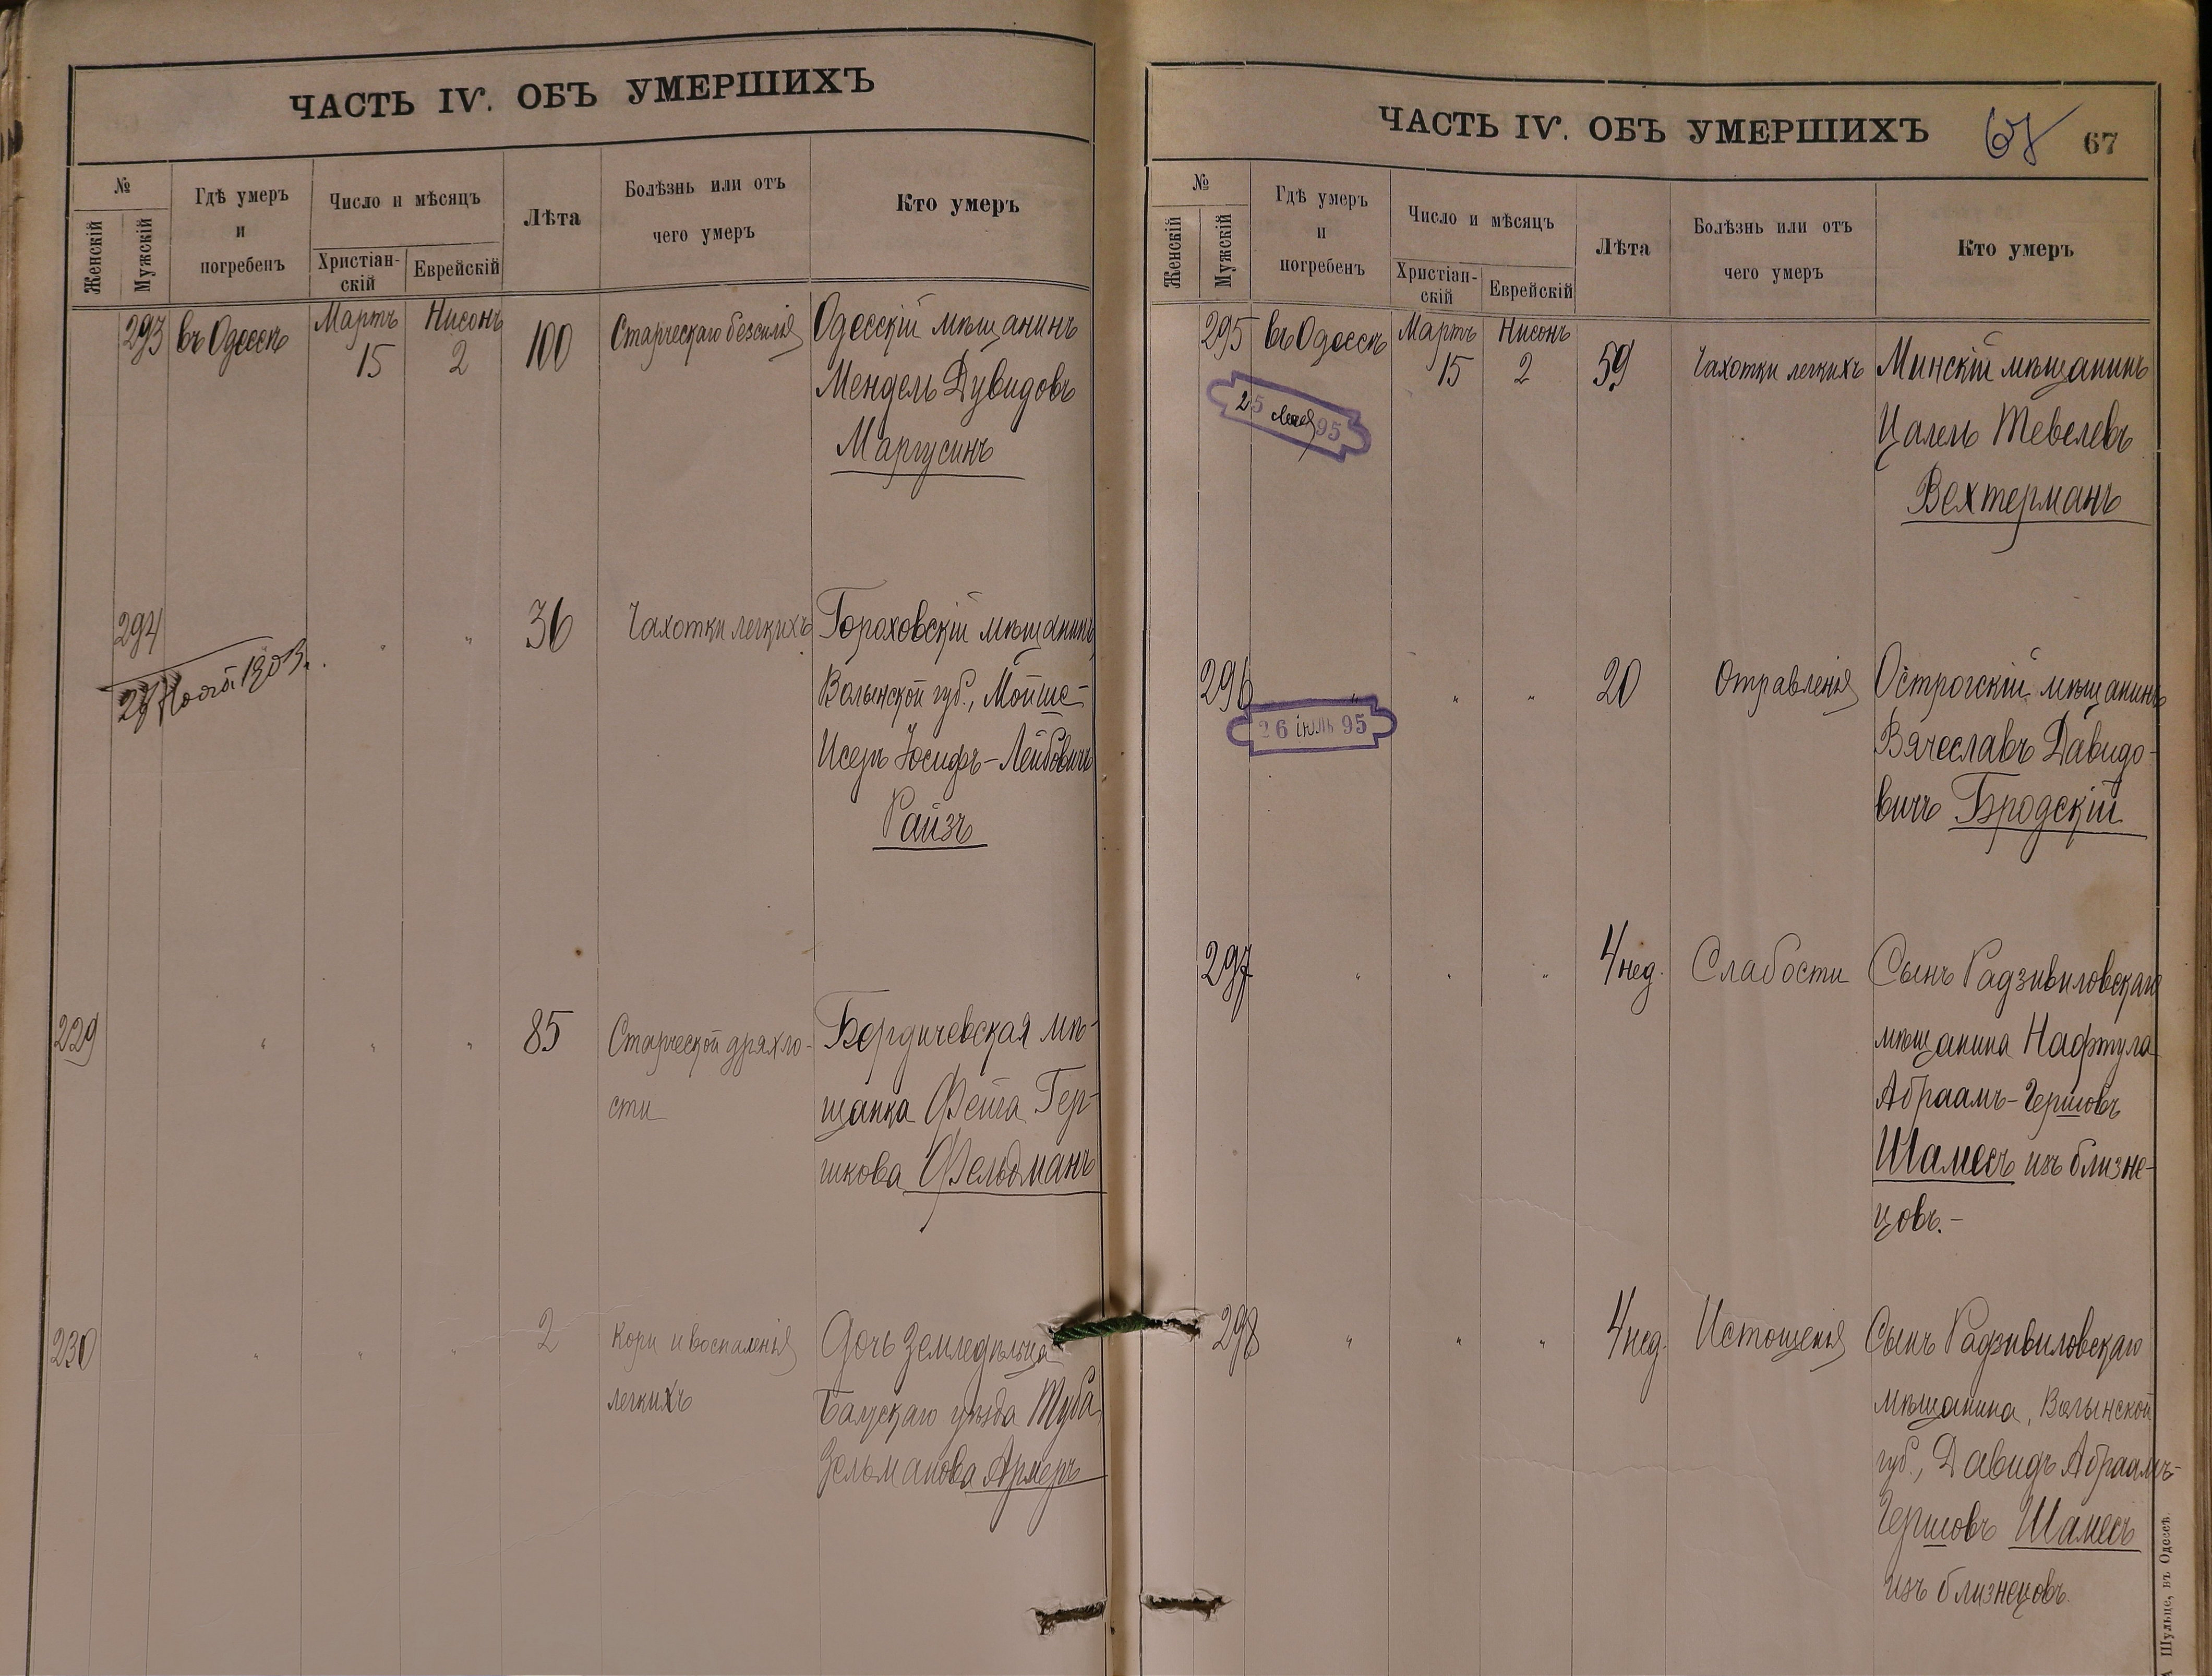 ЧАСТЬ IV. ОБЪ УМЕРШИХЪ
№
Женскій
Мужскій
Гдѣ умеръ
и
погребенъ
Число и мѣсяцъ
Христіан-
скій
Еврейскій
Лѣта
Болѣзнь или отъ
чего умеръ
Кто умеръ
293 въ Одессѣ Мартъ Нисонъ 100 Старческаго безсилія Одесскій мѣщанинъ
15 2 Мендель Дувидовъ
Маргусинъ
294 " " 36 Чахотки легкихъ Гороховскій мѣщанинъ,
Волынской губ., Мойше-
27 1903.
Исеръ Іосифъ-Лейбовичъ
Райзъ
229 " " " 85 Старческой дряхло- Бердичевская мѣ-
сти щанка Фейга Гер-
шкова Фельдманъ
230 " " " 2 Кори и воспаленія Дочь земледѣльца
легкихъ Балтскаго уѣзда Туба
Зельманова Армеръ
ЧАСТЬ IV. ОБЪ УМЕРШИХЪ 67 67
№
Женскій
Мужскій
Гдѣ умеръ
и
погребенъ
Число и мѣсяцъ
Христіан-
скій
Еврейскій
Лѣта
Болѣзнь или отъ
чего умеръ
Кто умеръ
295 въ Одессѣ Мартъ Нисонъ 59 Чахотки легкихъ Минскій мѣщанинъ
15 2
25 95
Цалель Тевелевъ
Вехтерманъ
296 " " " 20 Отравленія Острогскій мѣщанинъ
26 іюль 95
Вячеславъ Давидо-
вичъ Бродскій
297 " " " 4 нед. Слабости Сынъ Радзивиловскаго
мѣщанина Нафтула
Абраамъ-Гершовъ
Шамесъ изъ близне-
цовъ.-
298 " " " 4 нед. Истощенія Сынъ Радзивиловскаго
мѣщанина, Волынской
губ., Давидъ Абраамъ-
Гершовъ Шамесъ
изъ близнецовъ.
А Шульце, въ Одессѣ.